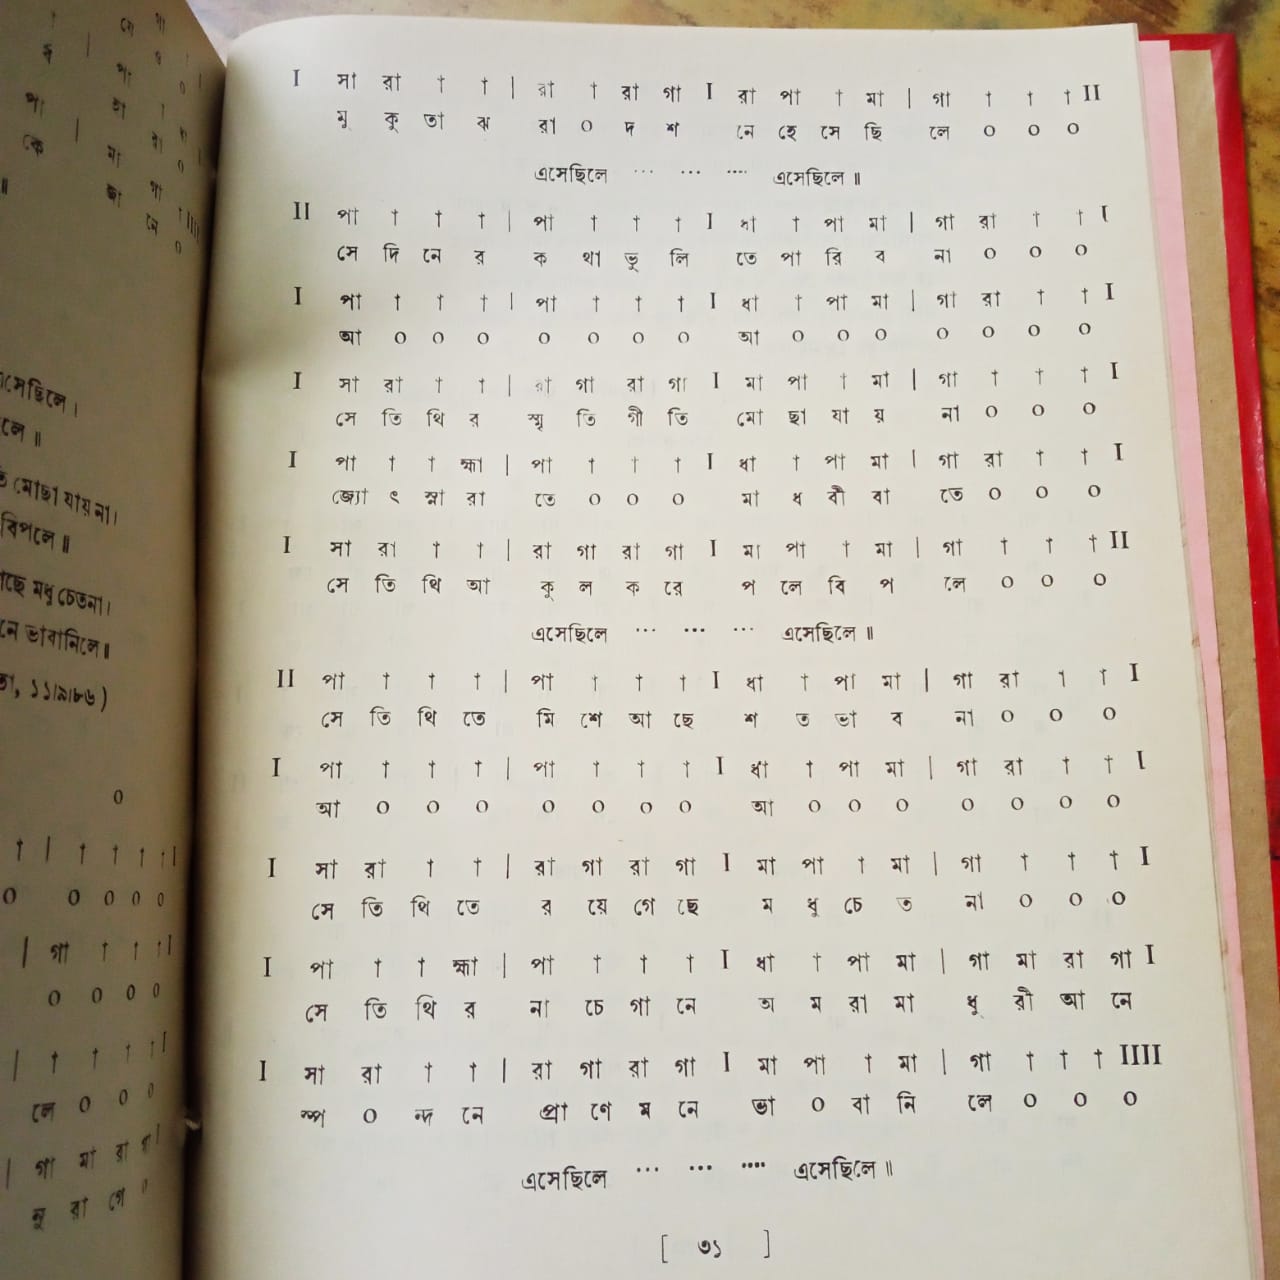 I সা রা † † | রা † রা গা I রা পা † মা | গা † † † II
মু কু তা ঝ রা ০ দ শ নে হে সে ছি লে ০ ০ ০
এসেছিলে ··· ··· ···· এসেছিলে ॥
II পা † † † | পা † † † I ধা † পা মা | গা রা † † I
সে দি নে র ক থা ভু লি তে পা রি ব না ০ ০ ০
I পা † † † | পা † † † I ধা † পা মা | গা রা † † I
আ ০ ০ ০ ০ ০ ০ ০ আ ০ ০ ০ ০ ০ ০ ০
I সা রা † † | রা গা রা গা I মা পা † মা | গা † † † I
সে তি থি র স্মৃ তি গী তি মো ছা যা য় না ০ ০ ০
I পা † † হ্মা | পা † † † I ধা † পা মা | গা রা † † I
জ্যো ৎ স্না রা তে ০ ০ ০ মা ধ বী বা তে ০ ০ ০
I সা রা † † | রা গা রা গা I মা পা † মা | গা † † † II
সে তি থি আ কু ল ক রে প লে বি প লে ০ ০ ০
এসেছিলে ··· ··· ··· এসেছিলে ॥
II পা † † † | পা † † † I ধা † পা মা | গা রা † † I
সে তি থি তে মি শে আ ছে শ ত ভা ব না ০ ০ ০
I পা † † † | পা † † † I ধা † পা মা | গা রা † † I
আ ০ ০ ০ ০ ০ ০ ০ আ ০ ০ ০ ০ ০ ০ ০
I সা রা † † | রা গা রা গা I মা পা † মা | গা † † † I
সে তি থি তে র য়ে গে ছে ম ধু চে ত না ০ ০ ০
I পা † † হ্মা | পা † † † I ধা † পা মা | গা মা রা গা I
সে তি থি র না চে গা নে অ ম রা মা ধু রী আ নে
I সা রা † † | রা গা রা গা I মা পা † মা | গা † † † IIII
স্প ০ ন্দ নে প্রা ণে ম নে ভা ০ বা নি লে ০ ০ ০
এসেছিলে ··· ··· ···· এসেছিলে ॥
[ ৩১ ]